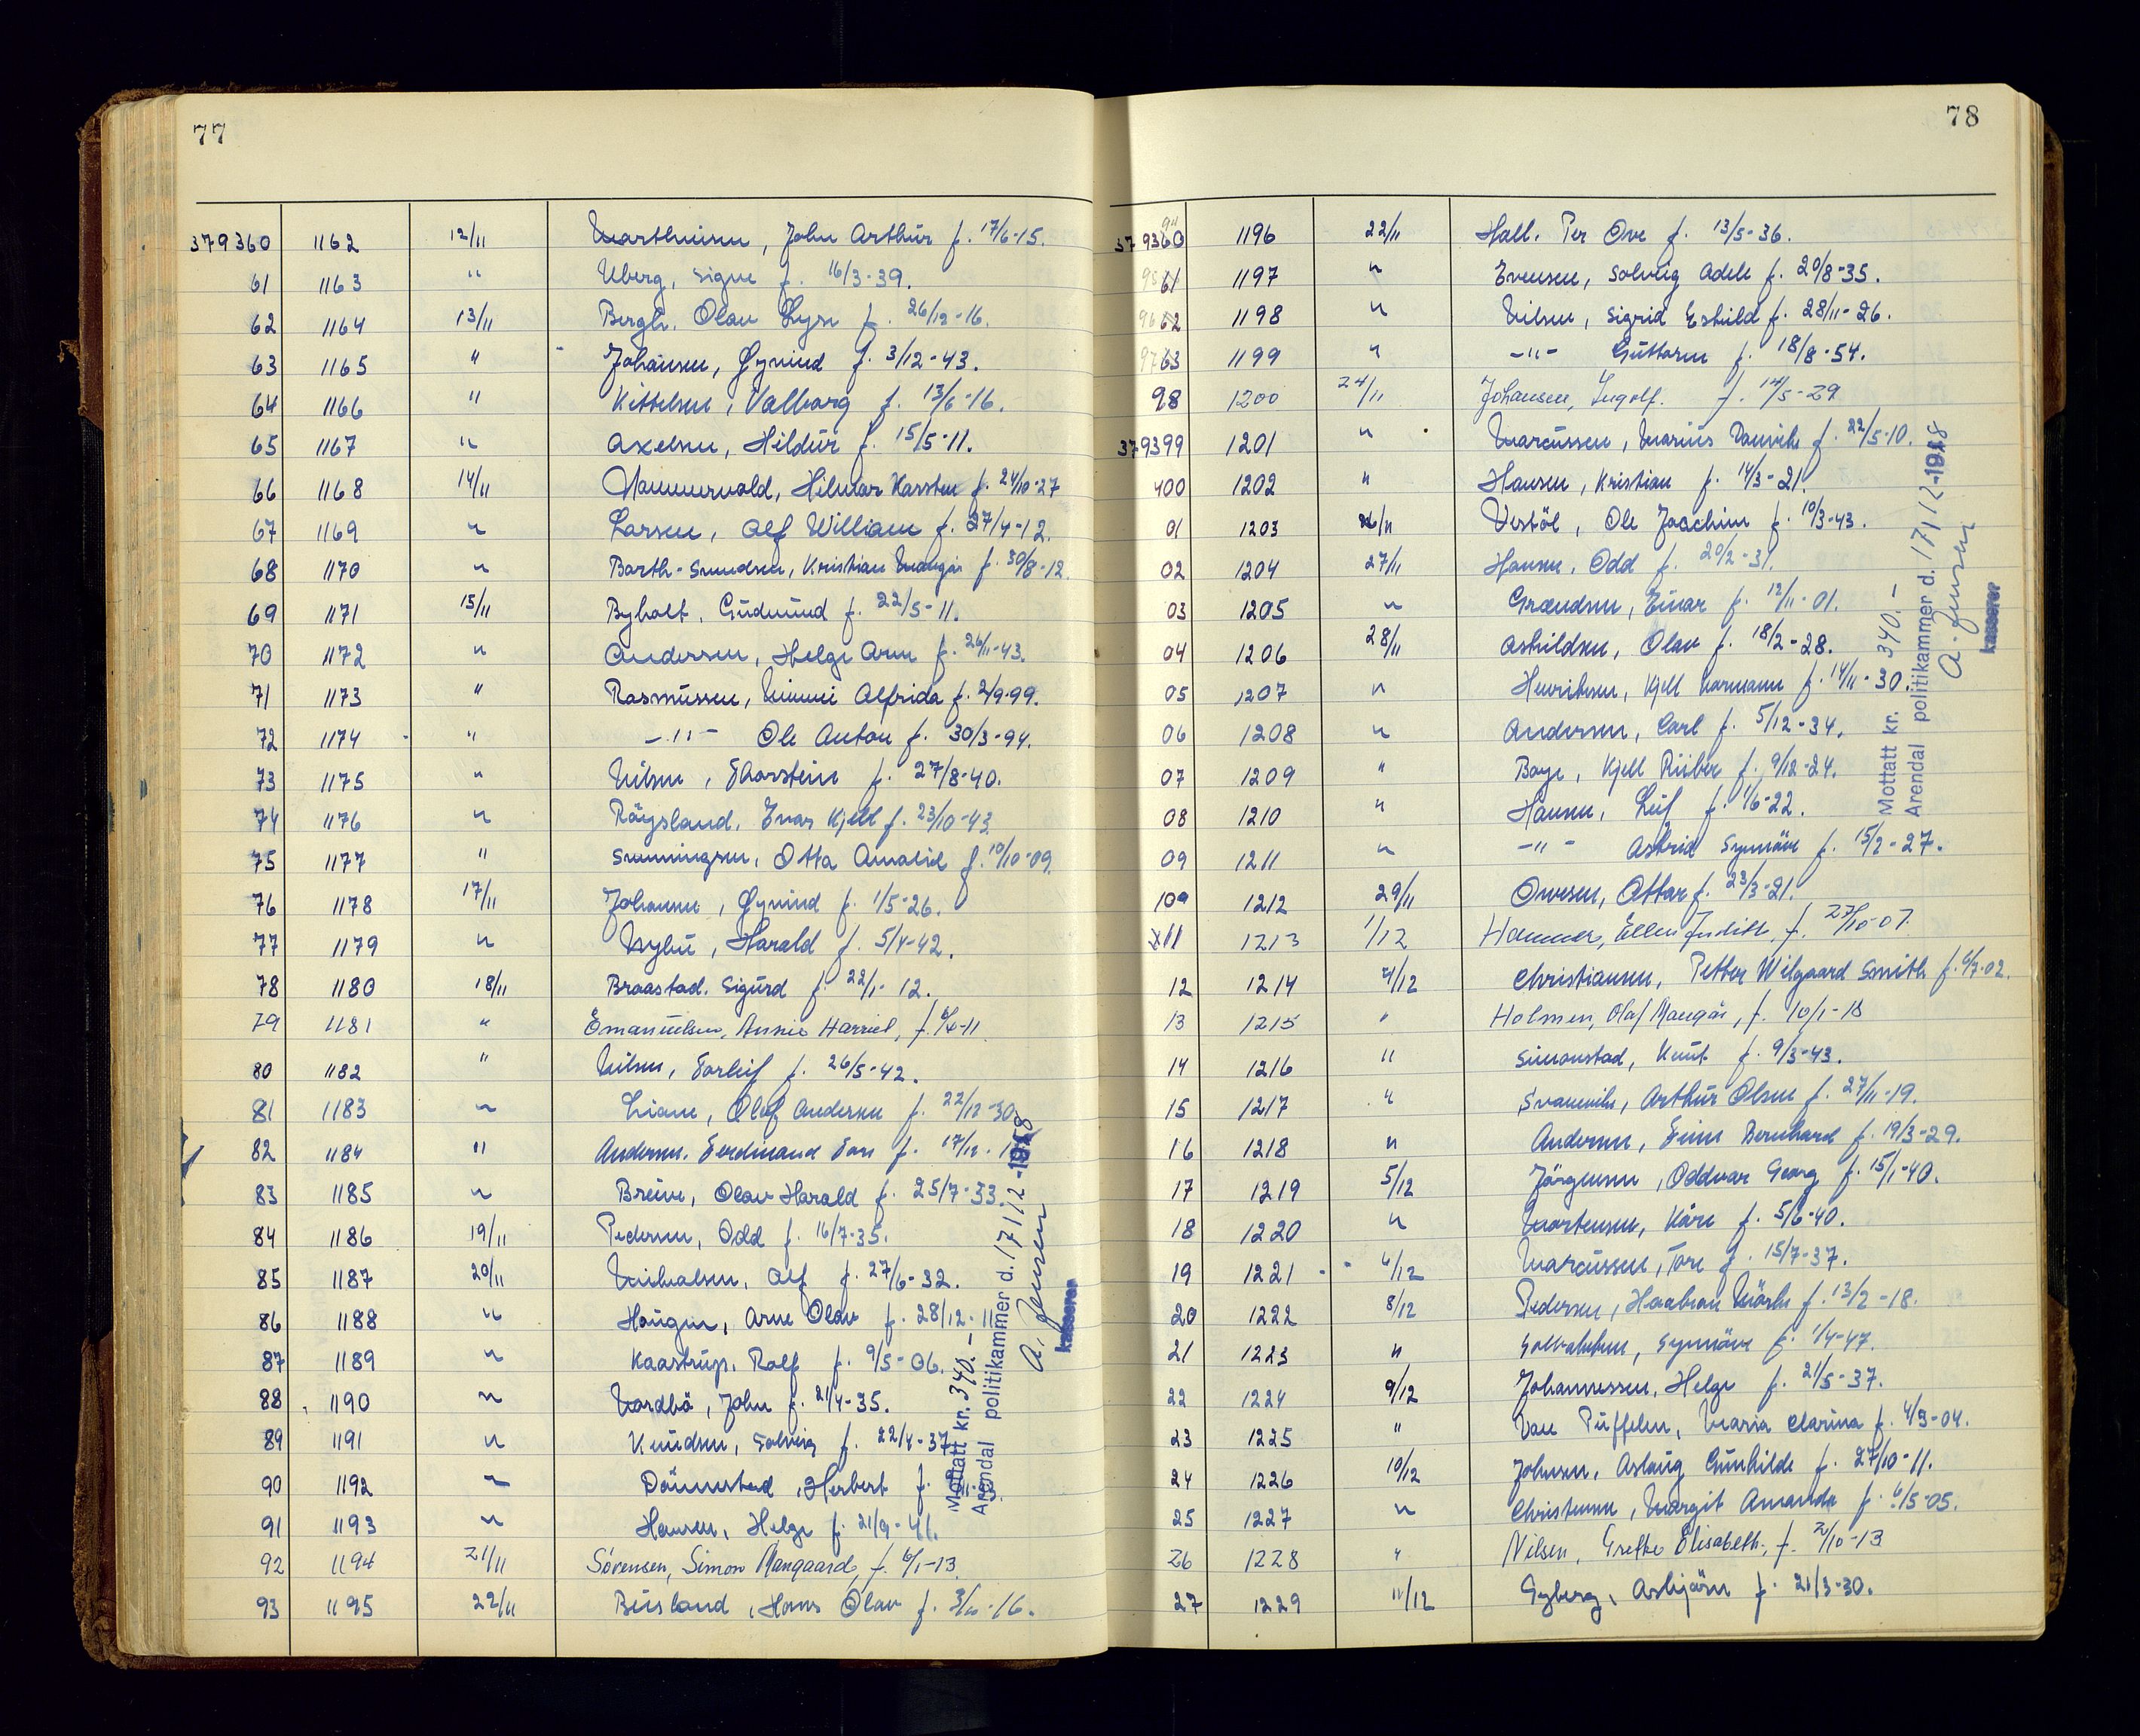 77
379360 1162 12/11 Marthinsen, John Arthur f. 17/6-15.
61 1163 " Uberg, Signe f. 16/3-39.
62 1164 13/11 Bergh, Olav Lyse f. 26/12-16.
63 1165 " Johansen, Øyvind f. 3/12-43.
64 1166 " Kittelsen, Valborg f. 13/6-16.
65 1167 " Axelsen, Hildur f. 15/5-11.
66 1168 14/11 Hammervold, Hilmar Karsten f. 24/10-27
67 1169 " Larsen, Alf William f. 27/4-12.
68 1170 " Barth-Svendsen, Kristian f. 30/8-12.
69 1171 15/11 Byholt, Gudmund f. 22/5-11.
70 1172 " Andersen, Helge Arne f. 26/11-43.
71 1173 " Rasmussen, Minni Alfrida f. 2/9-99.
72 1174 " -"- Ole Anton f. 30/3-94.
73 1175 " Nilsen, Thorstein f. 27/8-40.
74 1176 " Röysland, Kjell f. 23/10-43.
75 1177 " Svenningsen, Otta Amalie f. 10/10-09.
76 1178 17/11 Johansen, Øyvind f. 1/5-26.
77 1179 " Nybu, Harald f. 5/4-42.
78 1180 18/11 Braastad, Sigurd f. 22/1-12.
79 1181 " Emanuelsen, Annie Harriet, f. -11.
80 1182 " Nilsen, Torleif f. 26/5-42.
81 1183 " Liane, Olaf Andersen f. 22/12-30.
82 1184 " Andersen, Ferdinand f. 17/12-
83 1185 " Breive, Olav Harald f. 25/7-33.
84 1186 19/11 Pedersen, Odd f. 16/7-35.
85 1187 20/11 Mikalsen, Alf f. 27/6-32.
86 1188 " Haugen, Arne Olav f. 28/12-11.
87 1189 " Kaastrup, Rolf f. 9/5-06.
88 1190 " Nordbö, John f. 21/4-35.
89 1191 " Knudsen, Solveig f. 22/4-37.
90 1192 " Dönnestad, Herbert f.
91 1193 " Hansen, Helge f. 21/9-41.
92 1194 21/11 Sörensen, Simon Mangaard, f. 6/1-13.
93 1195 22/11 Beisland, Hans Olav f. -16.
Mottatt kr. 340.-
Arendal politikammer d. 17/12-1958
A. Jensen
kasserer
78
379394 1196 22/11 Hall, Per Ove f. 13/5-36.
95 1197 " Evensen, Solveig Adele f. 20/8-35.
96 1198 " Nilsen, Sigrid Eskild f. 28/11-26.
97 1199 " -"- Guttorm f. 18/8-54.
98 1200 24/11 Johansen, Ingolf. f. 14/5-29
379399 1201 " Marcussen, Marius f. 22/5-10.
400 1202 " Hansen, Kristian f. 14/3-21.
01 1203 26/11 Vestöl, Ole Joachim f. 10/3-43.
02 1204 27/11 Hansen, Odd f. 20/2-31.
03 1205 " Grandsen, Einar f. 12/11-01.
04 1206 28/11 Askildsen, Olav f. 18/2-28.
05 1207 " Henriksen, Kjell Normann f. 14/11-30.
06 1208 " Andersen, Carl f. 5/12-34.
07 1209 " Boye, Kjell Riiber f. 9/12-24.
08 1210 " Hansen, Leif f. 1/6-22.
09 1211 " -"- Astrid Synnöve f. 15/2-27.
10 1212 29/11 Ovesen, Ottar f. 23/3-21.
11 1213 1/12 Hammer, Ellen Judith, f. 27/10-07.
12 1214 4/12 Christiansen, Petter Wilgaard Smith f. 6/7-02.
13 1215 " Holmen, Olaf Mangås, f. 10/1-18
14 1216 " Simonstad, Knut f. 9/3-43.
15 1217 " Svaneviks, Arthur Olsen f. 27/11-19.
16 1218 " Andersen, Bernhard f. 19/3-29.
17 1219 5/12 Jörgensen, Oddvar Georg f. 15/1-40.
18 1220 " Mortensen, Kåre f. 5/6-40.
19 1221 6/12 Marcussen, Tore f. 15/7-37.
20 1222 8/12 Pedersen, Haakon f. 13/2-18.
21 1223 " Synnöve f. 1/4-47.
22 1224 9/12 Johannessen, Helge f. 21/5-37.
23 1225 " Van Puffelen, Maria Clarina f. 4/3-04.
24 1226 10/12 Johnsen, Aslaug Gunhilde f. 27/10-11.
25 1227 " Christensen, Margit Amanda f. 6/5-05.
26 1228 " Nilsen, Grethe Elisabeth, f. 2/10-13
27 1229 11/12 Gyberg, Asbjörn f. 21/3-30.
Mottatt kr. 340.-
Arendal politikammer d. 17/12-1958
A. Jensen
kasserer